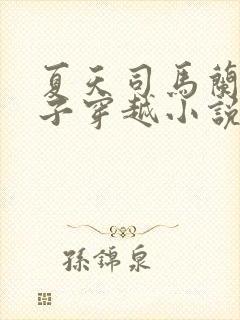 夏天司馬蘭
子穿越小說
孫錦泉